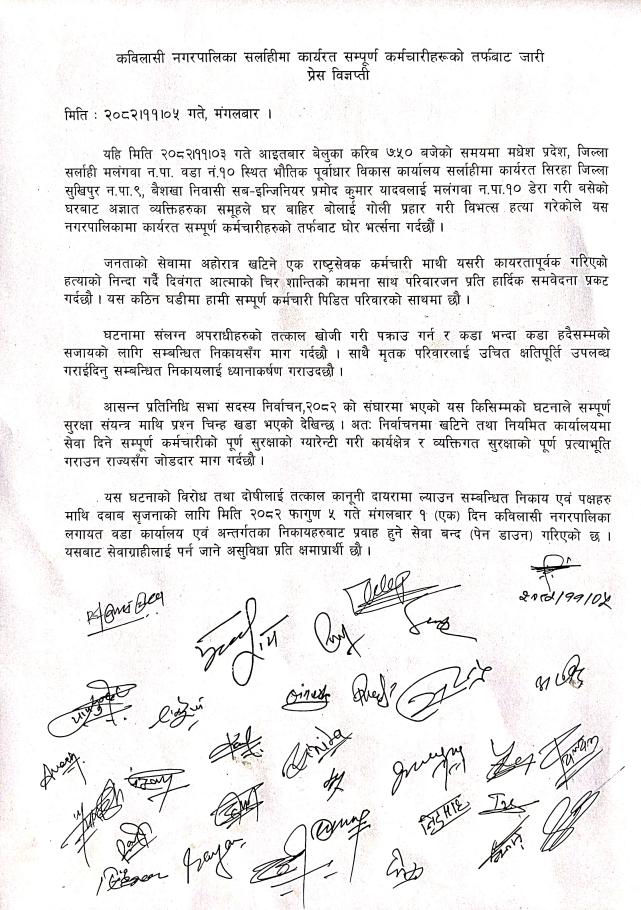 कविलासी नगरपालिका सर्लाहीमा कार्यरत सम्पूर्ण कर्मचारीहरूको तर्फबाट जारी
प्रेस विज्ञप्ती
मिति : २०८२।११।०५ गते, मंगलबार ।
यहि मिति २०८२।११।०३ गते आइतबार बेलुका करिब ७:५० बजेको समयमा मधेश प्रदेश, जिल्ला
सर्लाही मलंगवा न.पा. वडा नं.१० स्थित भौतिक पूर्वाधार विकास कार्यालय सर्लाहीमा कार्यरत सिरहा जिल्ला
सुखिपुर न.पा.९, बैशखा निवासी सब-इन्जिनियर प्रमोद कुमार यादवलाई मलंगवा न.पा.१० डेरा गरी बसेको
घरबाट अज्ञात व्यक्तिहरुका समूहले घर बाहिर बोलाई गोली प्रहार गरी विभत्स हत्या गरेकोले यस
नगरपालिकामा कार्यरत सम्पूर्ण कर्मचारीहरुको तर्फबाट घोर भर्त्सना गर्दछौं ।
जनताको सेवामा अहोरात्र खटिने एक राष्ट्रसेवक कर्मचारी माथी यसरी कायरतापूर्वक गरिएको
हत्याको निन्दा गर्दै दिवंगत आत्माको चिर शान्तिको कामना साथ परिवारजन प्रति हार्दिक समवेदना प्रकट
गर्दछौ । यस कठिन घडीमा हामी सम्पूर्ण कर्मचारी पिडित परिवारको साथमा छौ ।
घटनामा संलग्न अपराधीहरुको तत्काल खोजी गरी पक्राउ गर्न र कडा भन्दा कडा हदैसम्मको
सजायको लागि सम्बन्धित निकायसँग माग गर्दछौ । साथै मृतक परिवारलाई उचित क्षतिपूर्ति उपलब्ध
गराईदिनु सम्बन्धित निकायलाई ध्यानाकर्षण गराउदछौ ।
आसन्न प्रतिनिधि सभा सदस्य निर्वाचन,२०८२ को संघारमा भएको यस किसिम्मको घटनाले सम्पूर्ण
सुरक्षा संयन्त्र माथि प्रश्न चिन्ह खडा भएको देखिन्छ । अतः निर्वाचनमा खटिने तथा नियमित कार्यालयमा
सेवा दिने सम्पूर्ण कर्मचारीको पूर्ण सुरक्षाको ग्यारेन्टी गरी कार्यक्षेत्र र व्यक्तिगत सुरक्षाको पूर्ण प्रत्याभूति
गराउन राज्यसँग जोडदार माग गर्दछौ ।
यस घटनाको विरोध तथा दोषीलाई तत्काल कानूनी दायरामा ल्याउन सम्बन्धित निकाय एवं पक्षहरु
माथि दबाब सृजनाको लागि मिति २०८२ फागुण ५ गते मंगलबार १ (एक) दिन कविलासी नगरपालिका
लगायत वडा कार्यालय एवं अन्तर्गतका निकायहरुबाट प्रवाह हुने सेवा बन्द (पेन डाउन) गरिएको छ ।
यसबाट सेवाग्राहीलाई पर्न जाने असुविधा प्रति क्षमाप्रार्थी छौ ।
२०८२।११।०५